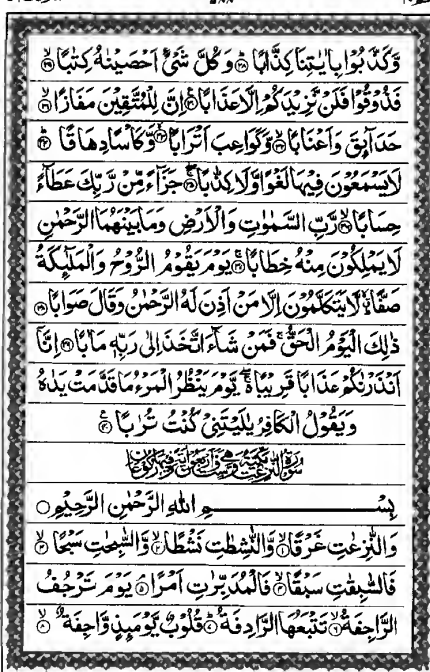 وَّكَذَّبُوْا بِاٰيٰتِنَا كِذَّابًا ﴿۲۸﴾ وَكُلَّ شَیْءٍ اَحْصَيْنٰهُ كِتٰبًا ﴿۲۹﴾
فَذُوْقُوْا فَلَنْ نَّزِيْدَكُمْ اِلَّا عَذَابًا ﴿۳۰﴾ اِنَّ لِلْمُتَّقِيْنَ مَفَازًا ﴿۳۱﴾
حَدَآئِقَ وَاَعْنَابًا ﴿۳۲﴾ وَّكَوَاعِبَ اَتْرَابًا ﴿۳۳﴾ وَّكَاْسًا دِهَاقًا ﴿۳۴﴾
لَا يَسْمَعُوْنَ فِيْهَا لَغْوًا وَّلَا كِذّٰبًا ﴿۳۵﴾ جَزَآءً مِّنْ رَّبِّكَ عَطَآءً
حِسَابًا ﴿۳۶﴾ رَّبِّ السَّمٰوٰتِ وَالْاَرْضِ وَمَا بَيْنَهُمَا الرَّحْمٰنِ
لَا يَمْلِكُوْنَ مِنْهُ خِطَابًا ﴿۳۷﴾ يَوْمَ يَقُوْمُ الرُّوْحُ وَالْمَلٰٓئِكَةُ
صَفًّا لَّا يَتَكَلَّمُوْنَ اِلَّا مَنْ اَذِنَ لَهُ الرَّحْمٰنُ وَقَالَ صَوَابًا ﴿۳۸﴾
ذٰلِكَ الْيَوْمُ الْحَقُّ فَمَنْ شَآءَ اتَّخَذَ اِلٰى رَبِّهٖ مَاٰبًا ﴿۳۹﴾ اِنَّاۤ
اَنْذَرْنٰكُمْ عَذَابًا قَرِيْبًا يَّوْمَ يَنْظُرُ الْمَرْءُ مَا قَدَّمَتْ يَدٰهُ
وَيَقُوْلُ الْكٰفِرُ يٰلَيْتَنِيْ كُنْتُ تُرٰبًا ﴿۴۰﴾
بِسْمِ اللهِ الرَّحْمٰنِ الرَّحِيْمِ
وَالنّٰزِعٰتِ غَرْقًا ﴿۱﴾ وَّالنّٰشِطٰتِ نَشْطًا ﴿۲﴾ وَّالسّٰبِحٰتِ سَبْحًا ﴿۳﴾
فَالسّٰبِقٰتِ سَبْقًا ﴿۴﴾ فَالْمُدَبِّرٰتِ اَمْرًا ﴿۵﴾ يَوْمَ تَرْجُفُ
الرَّاجِفَةُ ﴿۶﴾ تَتْبَعُهَا الرَّادِفَةُ ﴿۷﴾ قُلُوْبٌ يَّوْمَئِذٍ وَّاجِفَةٌ ﴿۸﴾